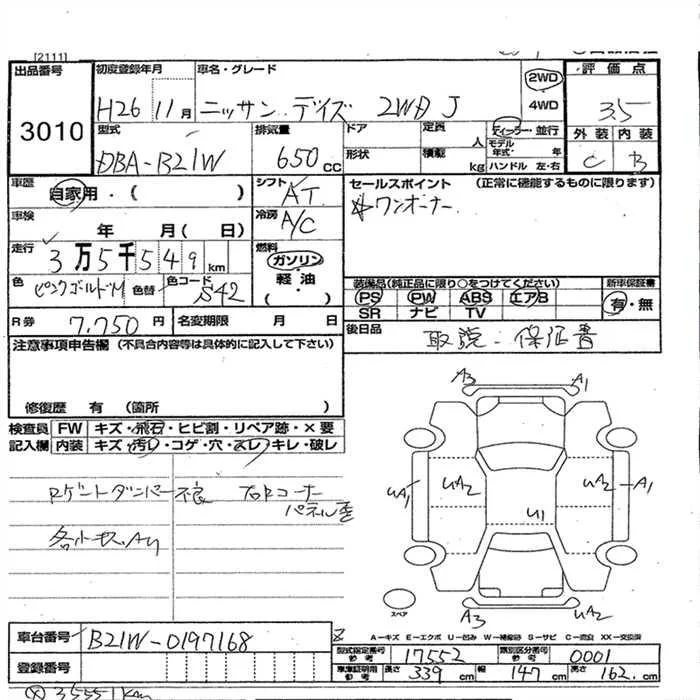 [2111]
出品番号 初度登録年月 車名・グレード 2WD 評価点
3010 H26 11月 ニッサン デイズ 2WD J 4WD 3.5
型式 排気量 ドア 定員 人 ディーラー・並行 外装 内装
DBA-B21W 650cc 形状 積載 kg モデル年式・ 年 ハンドル 左・右 C B
車歴 自家用・( ) シフト AT セールスポイント (正常に機能するものに限ります)
車検 年 月( 日) 冷房 A/C ワンオーナー
走行 3万5千549km 燃料 ガソリン・軽油・( )
色 ピンクゴールドM 色替 色コード S42
装備品(純正品に限り○をつけてください) 新車保証書
PS PW ABS エアB 有・無
SR ナビ TV
R券 7.750円 名変期限 月 日 後日品 取説・保証書
注意事項申告欄 (不具合内容等は具体的に記入して下さい)
修復歴 有 (箇所 )
検査員 FW キズ・飛石・ヒビ割・リペア跡・×要
記入欄 内装 キズ・汚レ・コゲ・穴・スレ・キレ・破レ
Rゲートダンパー不良 フロアコーナー
パネル歪
A3 A1
uA1 uA2 uA2 A1
U1
スペア
A3 uA2
車台番号 B21W-0197168
登録番号
A−キズ E−エクボ U−凹み W−補修跡 S−サビ C−腐食 XX−交換済
型式指定番号 参考 17552 類別区分番号 参考 0001
車庫証明用 参考 長さ 339cm 幅 147cm 高さ 162.cm
35551km